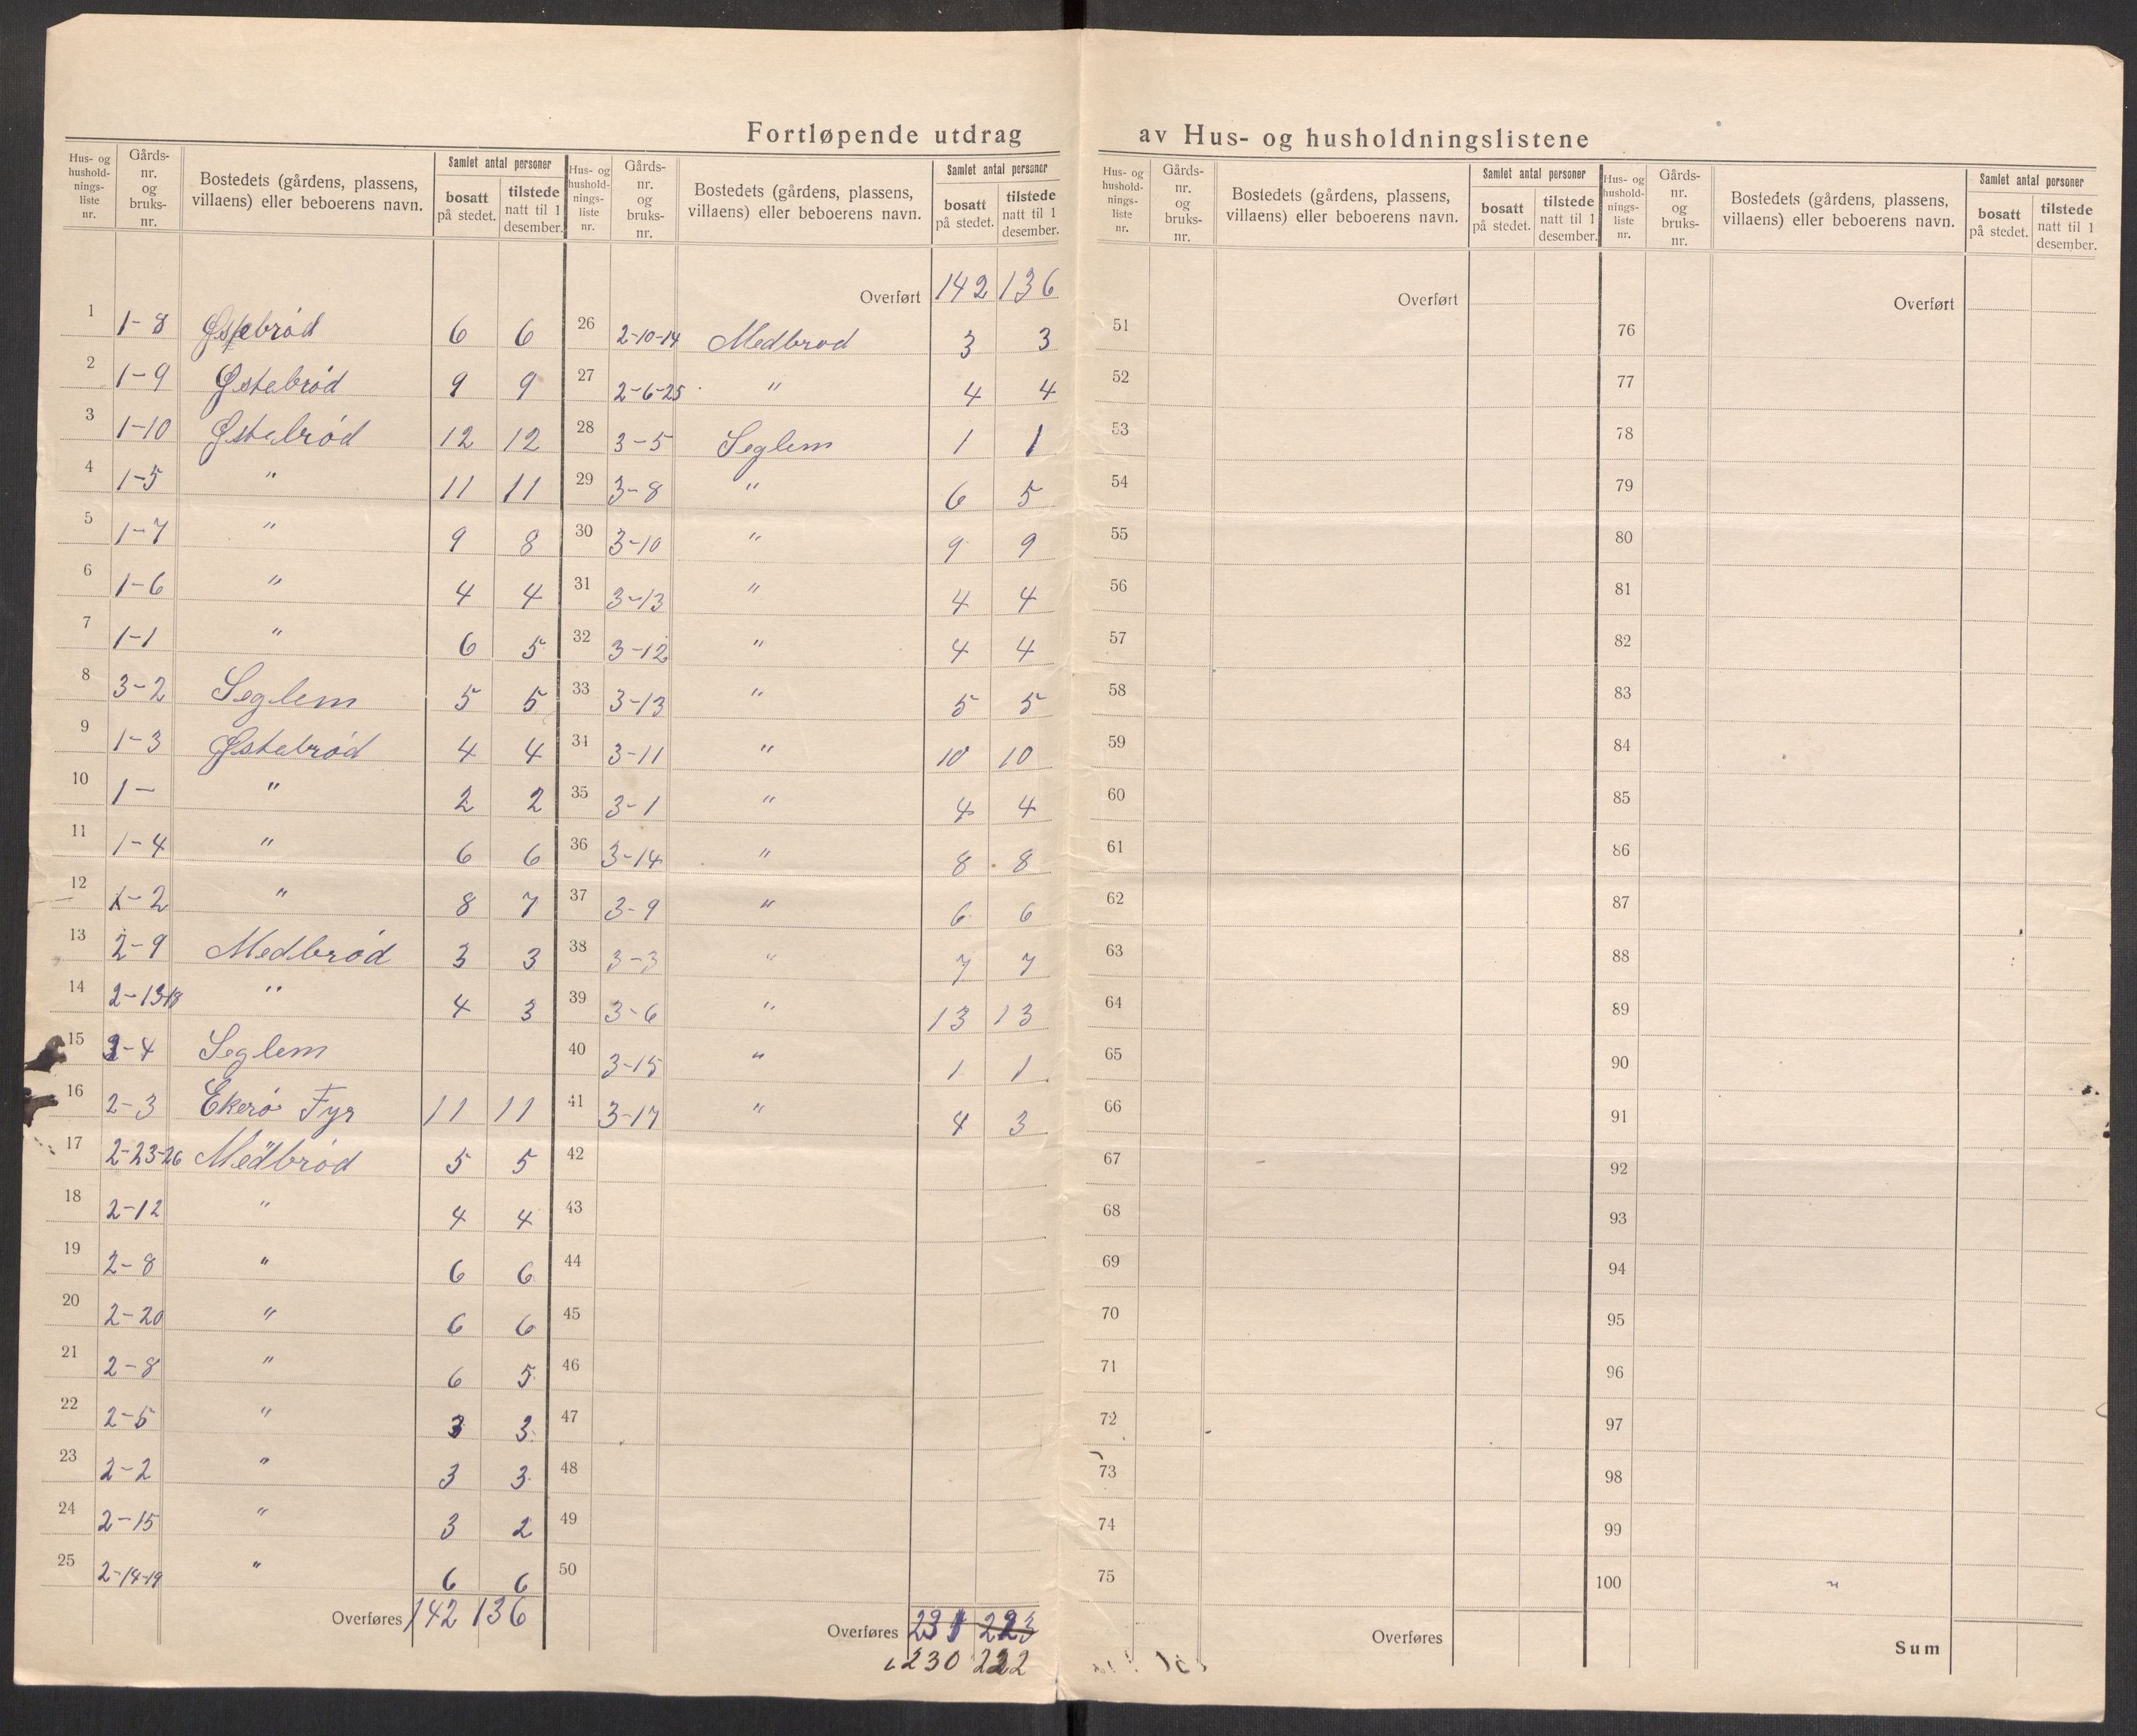 Fortløpende utdrag av Hus- og husholdningslistene
Hus- og husholdnings-liste nr. | Gårds-nr. og bruks-nr. | Bostedets (gårdens, plassens, villaens) eller beboerens navn. | Samlet antal personer | bosatt på stedet. | tilstede natt til 1 desember.
1 1-8 Østebrød 6 6
2 1-9 Østebrød 9 9
3 1-10 Østebrød 12 12
4 1-5 " 11 11
5 1-7 " 9 8
6 1-6 " 4 4
7 1-1 " 6 5
8 3-2 Seglem 5 5
9 1-3 Østebrød 4 4
10 1- " 2 2
11 1-4 " 6 6
12 1-2 " 8 7
13 2-9 Medbrød 3 3
14 2-13-18 " 4 3
15 3-4 Seglem
16 2-3 Ekerø Fyr 11 11
17 2-23-26 Medbrød 5 5
18 2-12 " 4 4
19 2-8 " 6 6
20 2-20 " 6 6
21 2-8 " 6 5
22 2-5 " 3 3
23 2-2 " 3 3
24 2-15 " 3 2
25 2-14-19 " 6 6
Overføres 142 136
Hus- og husholdnings-liste nr. | Gårds-nr. og bruks-nr. | Bostedets (gårdens, plassens, villaens) eller beboerens navn. | Samlet antal personer | bosatt på stedet. | tilstede natt til 1 desember.
Overført 142 136
26 2-10-14 Medbrød 3 3
27 2-6-25 " 4 4
28 3-5 Seglem 1 1
29 3-8 " 6 5
30 3-10 " 9 9
31 3-13 " 4 4
32 3-12 " 4 4
33 3-13 " 5 5
34 3-11 " 10 10
35 3-1 " 4 4
36 3-14 " 8 8
37 3-9 " 6 6
38 3-3 " 7 7
39 3-6 " 13 13
40 3-15 " 1 1
41 3-17 " 4 3
42
43
44
45
46
47
48
49
50
Overføres 231 223
230 222
Hus- og husholdnings-liste nr. | Gårds-nr. og bruks-nr. | Bostedets (gårdens, plassens, villaens) eller beboerens navn. | Samlet antal personer | bosatt på stedet. | tilstede natt til 1 desember.
Overført
51
52
53
54
55
56
57
58
59
60
61
62
63
64
65
66
67
68
69
70
71
72
73
74
75
Overføres
Hus- og husholdnings-liste nr. | Gårds-nr. og bruks-nr. | Bostedets (gårdens, plassens, villaens) eller beboerens navn. | Samlet antal personer | bosatt på stedet. | tilstede natt til 1 desember.
Overført
76
77
78
79
80
81
82
83
84
85
86
87
88
89
90
91
92
93
94
95
96
97
98
99
100
Sum